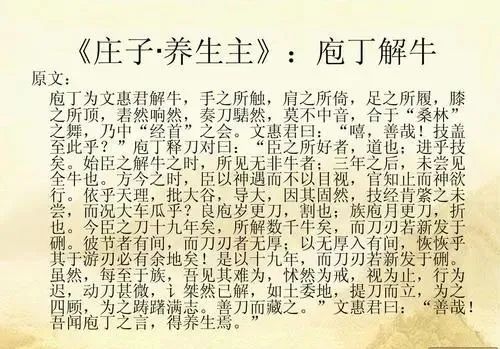 《庄子·养生主》：庖丁解牛
原文：
庖丁为文惠君解牛，手之所触，肩之所倚，足之所履，膝
之所顶，砉然响然，奏刀騞然，莫不中音，合于“桑林”
之舞，乃中“经首”之会。文惠君曰：“嘻，善哉！技盖
至此乎？”庖丁释刀对曰：“臣之所好者，道也；进乎技
矣。始臣之解牛之时，所见无非牛者；三年之后，未尝见
全牛也。方今之时，臣以神遇而不以目视，官知止而神欲
行。依乎天理，批大谷，导大，因其固然，技经肯綮之未
尝，而况大车瓜乎？良庖岁更刀，割也；族庖月更刀，折
也。今臣之刀十九年矣，所解数千牛矣，而刀刃若新发于
硎。彼节者有间，而刀刃者无厚；以无厚入有间，恢恢乎
其于游刃必有余地矣！是以十九年，而刀刃若新发于硎。
虽然，每至于族，吾见其难为，怵然为戒，视为止，行为
迟，动刀甚微，讠桀然已解，如土委地，提刀而立，为之
四顾，为之踌躇满志。善刀而藏之。”文惠君曰：“善哉！
吾闻庖丁之言，得养生焉。”